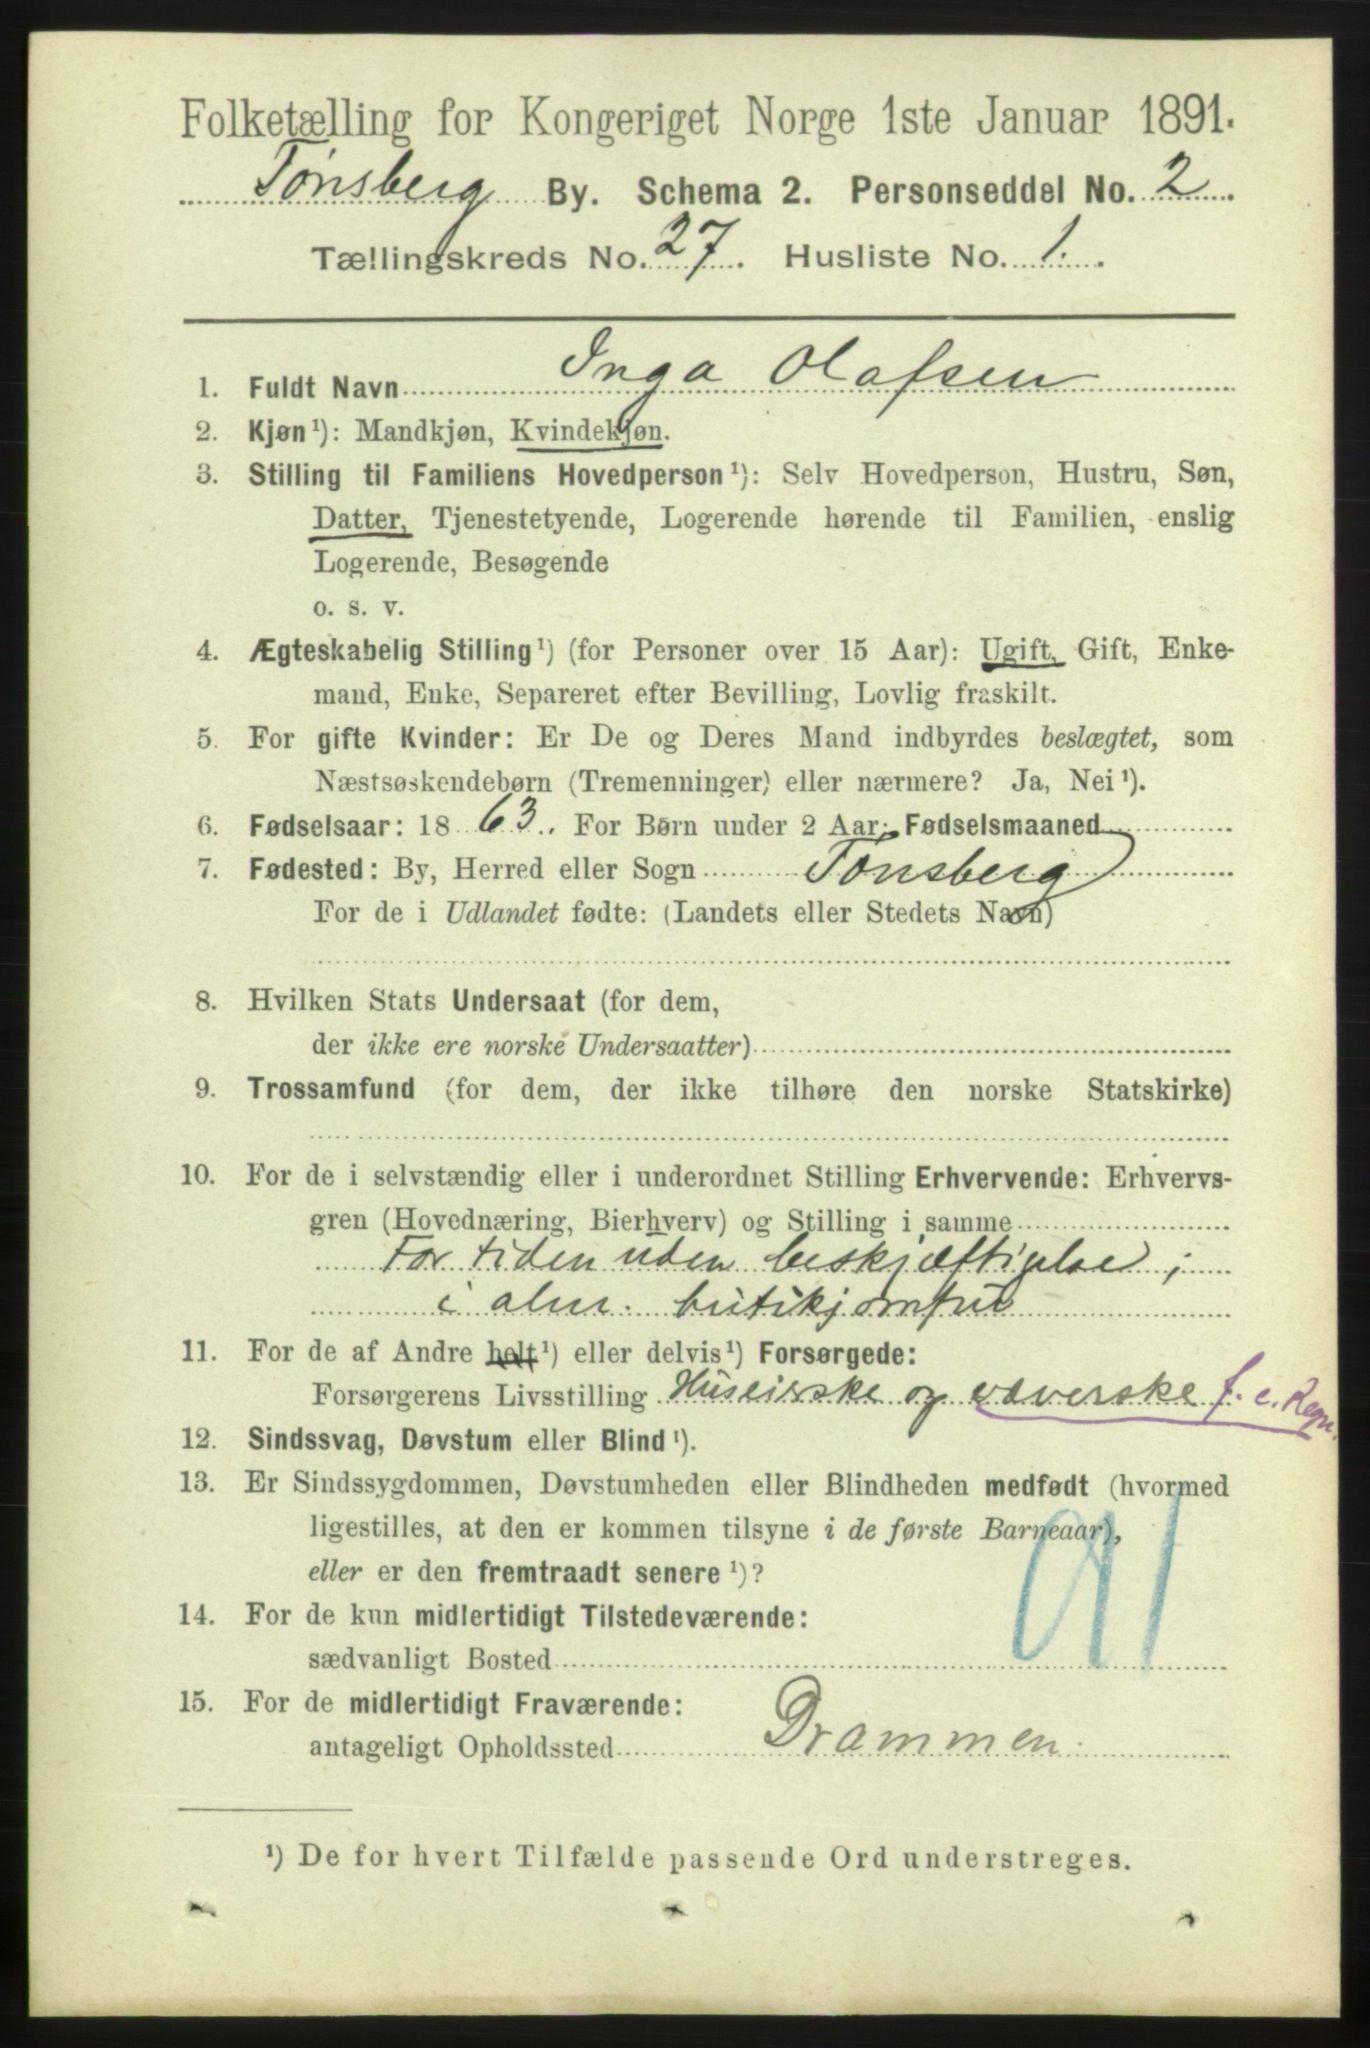 Folketælling for Kongeriget Norge 1ste Januar 1891.
Tønsberg By. Schema 2. Personseddel No. 2
Tællingskreds No. 27. Husliste No. 1.
1. Fuldt Navn Inga Olafsen
2. Kjøn¹): Mandkjøn, Kvindekjøn.
3. Stilling til Familiens Hovedperson¹): Selv Hovedperson, Hustru, Søn,
Datter, Tjenestetyende, Logerende hørende til Familien, enslig
Logerende, Besøgende
o. s. v.
4. Ægteskabelig Stilling¹) (for Personer over 15 Aar): Ugift, Gift, Enke-
mand, Enke, Separeret efter Bevilling, Lovlig fraskilt.
5. For gifte Kvinder: Er De og Deres Mand indbyrdes beslægtet, som
Næstsøskendebørn (Tremenninger) eller nærmere? Ja, Nei¹).
6. Fødselsaar: 1863. For Børn under 2 Aar: Fødselsmaaned
7. Fødested: By, Herred eller Sogn Tønsberg
For de i Udlandet fødte: (Landets eller Stedets Navn)
8. Hvilken Stats Undersaat (for dem,
der ikke ere norske Undersaatter)
9. Trossamfund (for dem, der ikke tilhøre den norske Statskirke)
10. For de i selvstændig eller i underordnet Stilling Erhvervende: Erhvervs-
gren (Hovednæring, Bierhverv) og Stilling i samme
For tiden uden beskjæftigelse;
i alm. butikjomfru
11. For de af Andre helt¹) eller delvis¹) Forsørgede:
Forsørgerens Livsstilling Huseierske og væverske f. e. Regn.
12. Sindssvag, Døvstum eller Blind¹).
13. Er Sindssygdommen, Døvstumheden eller Blindheden medfødt (hvormed
ligestilles, at den er kommen tilsyne i de første Barneaar),
eller er den fremtraadt senere¹)?
91
14. For de kun midlertidigt Tilstedeværende:
sædvanligt Bosted
15. For de midlertidigt Fraværende:
antageligt Opholdssted Drammen.
¹) De for hvert Tilfælde passende Ord understreges.